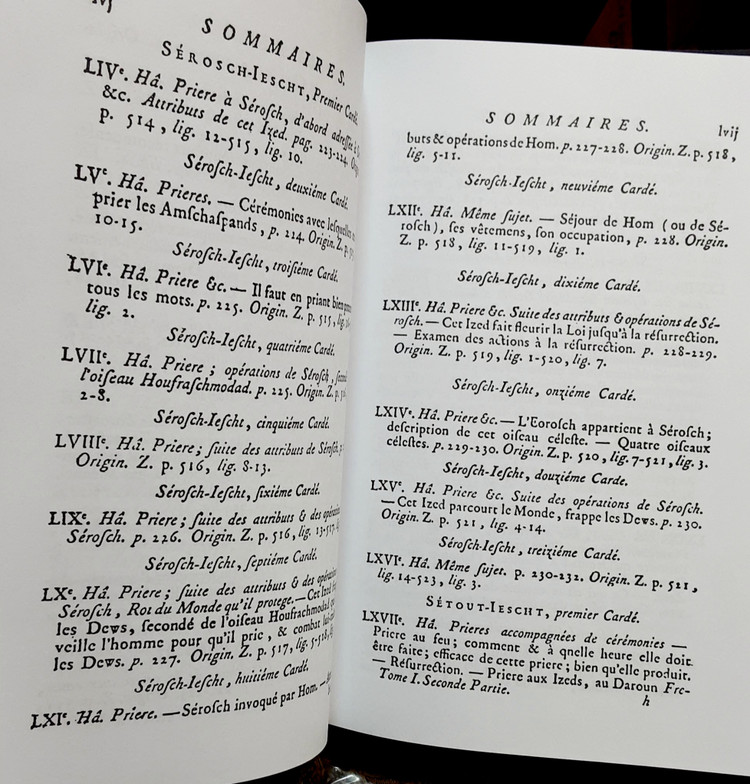 lvj
SOMMAIRES.
SÉROSCH-IESCHT, Premier Cardé.
LIVᵉ. Hâ. Priere à Séroſch, d'abord adreſſée à
&c. Attributs de cet Ized. pag. 223-224. Origin.
p. 514, lig. 12-515, lig. 10.
Séroſch-Ieſcht, deuxiéme Cardé.
LVᵉ. Hâ. Prieres. — Cérémonies avec leſquelles
prier les Amſchaſpands, p. 224. Origin. Z. p.
10-15.
Séroſch-Ieſcht, troiſiéme Cardé.
LVIᵉ. Hâ. Priere &c. — Il faut en priant bien
tous les mots. p. 225. Origin. Z. p. 515, lig.
lig. 2.
Séroſch-Ieſcht, quatriéme Cardé.
LVIIᵉ. Hâ. Priere ; opérations de Séroſch,
l'oiſeau Houfraſchmodad. p. 225. Origin. Z. p.
2-8.
Séroſch-Ieſcht, cinquiéme Cardé.
LVIIIᵉ. Hâ. Priere ; ſuite des attributs de Séroſch,
Origin. Z. p. 516, lig. 8-13.
Séroſch-Ieſcht, ſixiéme Cardé.
LIXᵉ. Hâ. Priere ; ſuite des attributs & des
Séroſch. p. 226. Origin. Z. p. 516, lig. 13-517.
Séroſch-Ieſcht, ſeptiéme Cardé.
LXᵉ. Hâ. Priere ; ſuite des attributs & des
Séroſch, Roi du Monde qu'il protege. — Cet Ized
les Dews, ſecondé de l'oiſeau Houfraſchmodad
veille l'homme pour qu'il prie, & combat
les Dews. p. 227. Origin. Z. p. 517, lig. 5-518,
Séroſch-Ieſcht, huitiéme Cardé.
LXIᵉ. Hâ. Priere. — Séroſch invoqué par Hom. —
SOMMAIRES. lvij
buts & opérations de Hom. p. 227-228. Origin. Z. p. 518,
lig. 5-11.
Séroſch-Ieſcht, neuviéme Cardé.
LXIIᵉ. Hâ. Même ſujet. — Séjour de Hom (ou de Sé-
roſch), ſes vêtemens, ſon occupation, p. 228. Origin.
Z. p. 518, lig. 11-519, lig. 1.
Séroſch-Ieſcht, dixiéme Cardé.
LXIIIᵉ. Hâ. Priere &c. Suite des attributs & opérations de Sé-
roſch. — Cet Ized fait fleurir la Loi juſqu'à la réſurrection.
— Examen des actions à la réſurrection. p. 228-229.
Origin. Z. p. 519, lig. 1-520, lig. 7.
Séroſch-Ieſcht, onziéme Cardé.
LXIVᵉ. Hâ. Priere &c. — L'Eoroſch appartient à Séroſch ;
deſcription de cet oiſeau céleſte. — Quatre oiſeaux
céleſtes. p. 229-230. Origin. Z. p. 520, lig. 7-521, lig. 3.
Séroſch-Ieſcht, douziéme Carde.
LXVᵉ. Hâ. Priere &c. Suite des opérations de Séroſch.
— Cet Ized parcourt le Monde, frappe les Dews. p. 230.
Origin. Z. p. 521, lig. 4-14.
Séroſch-Ieſcht, treiziéme Cardé.
LXVIᵉ. Hâ. Même ſujet. p. 230-232. Origin. Z. p. 521,
lig. 14-523, lig. 3.
SÉTOUT-IESCHT, premier Cardé.
LXVIIᵉ. Hâ. Prieres accompagnées de cérémonies —
Priere au feu ; comment & à quelle heure elle doit
être faite ; efficace de cette priere ; bien qu'elle produit.
— Réſurrection. — Priere aux Izeds, au Daroun Fre-
Tome I. Seconde Partie. h